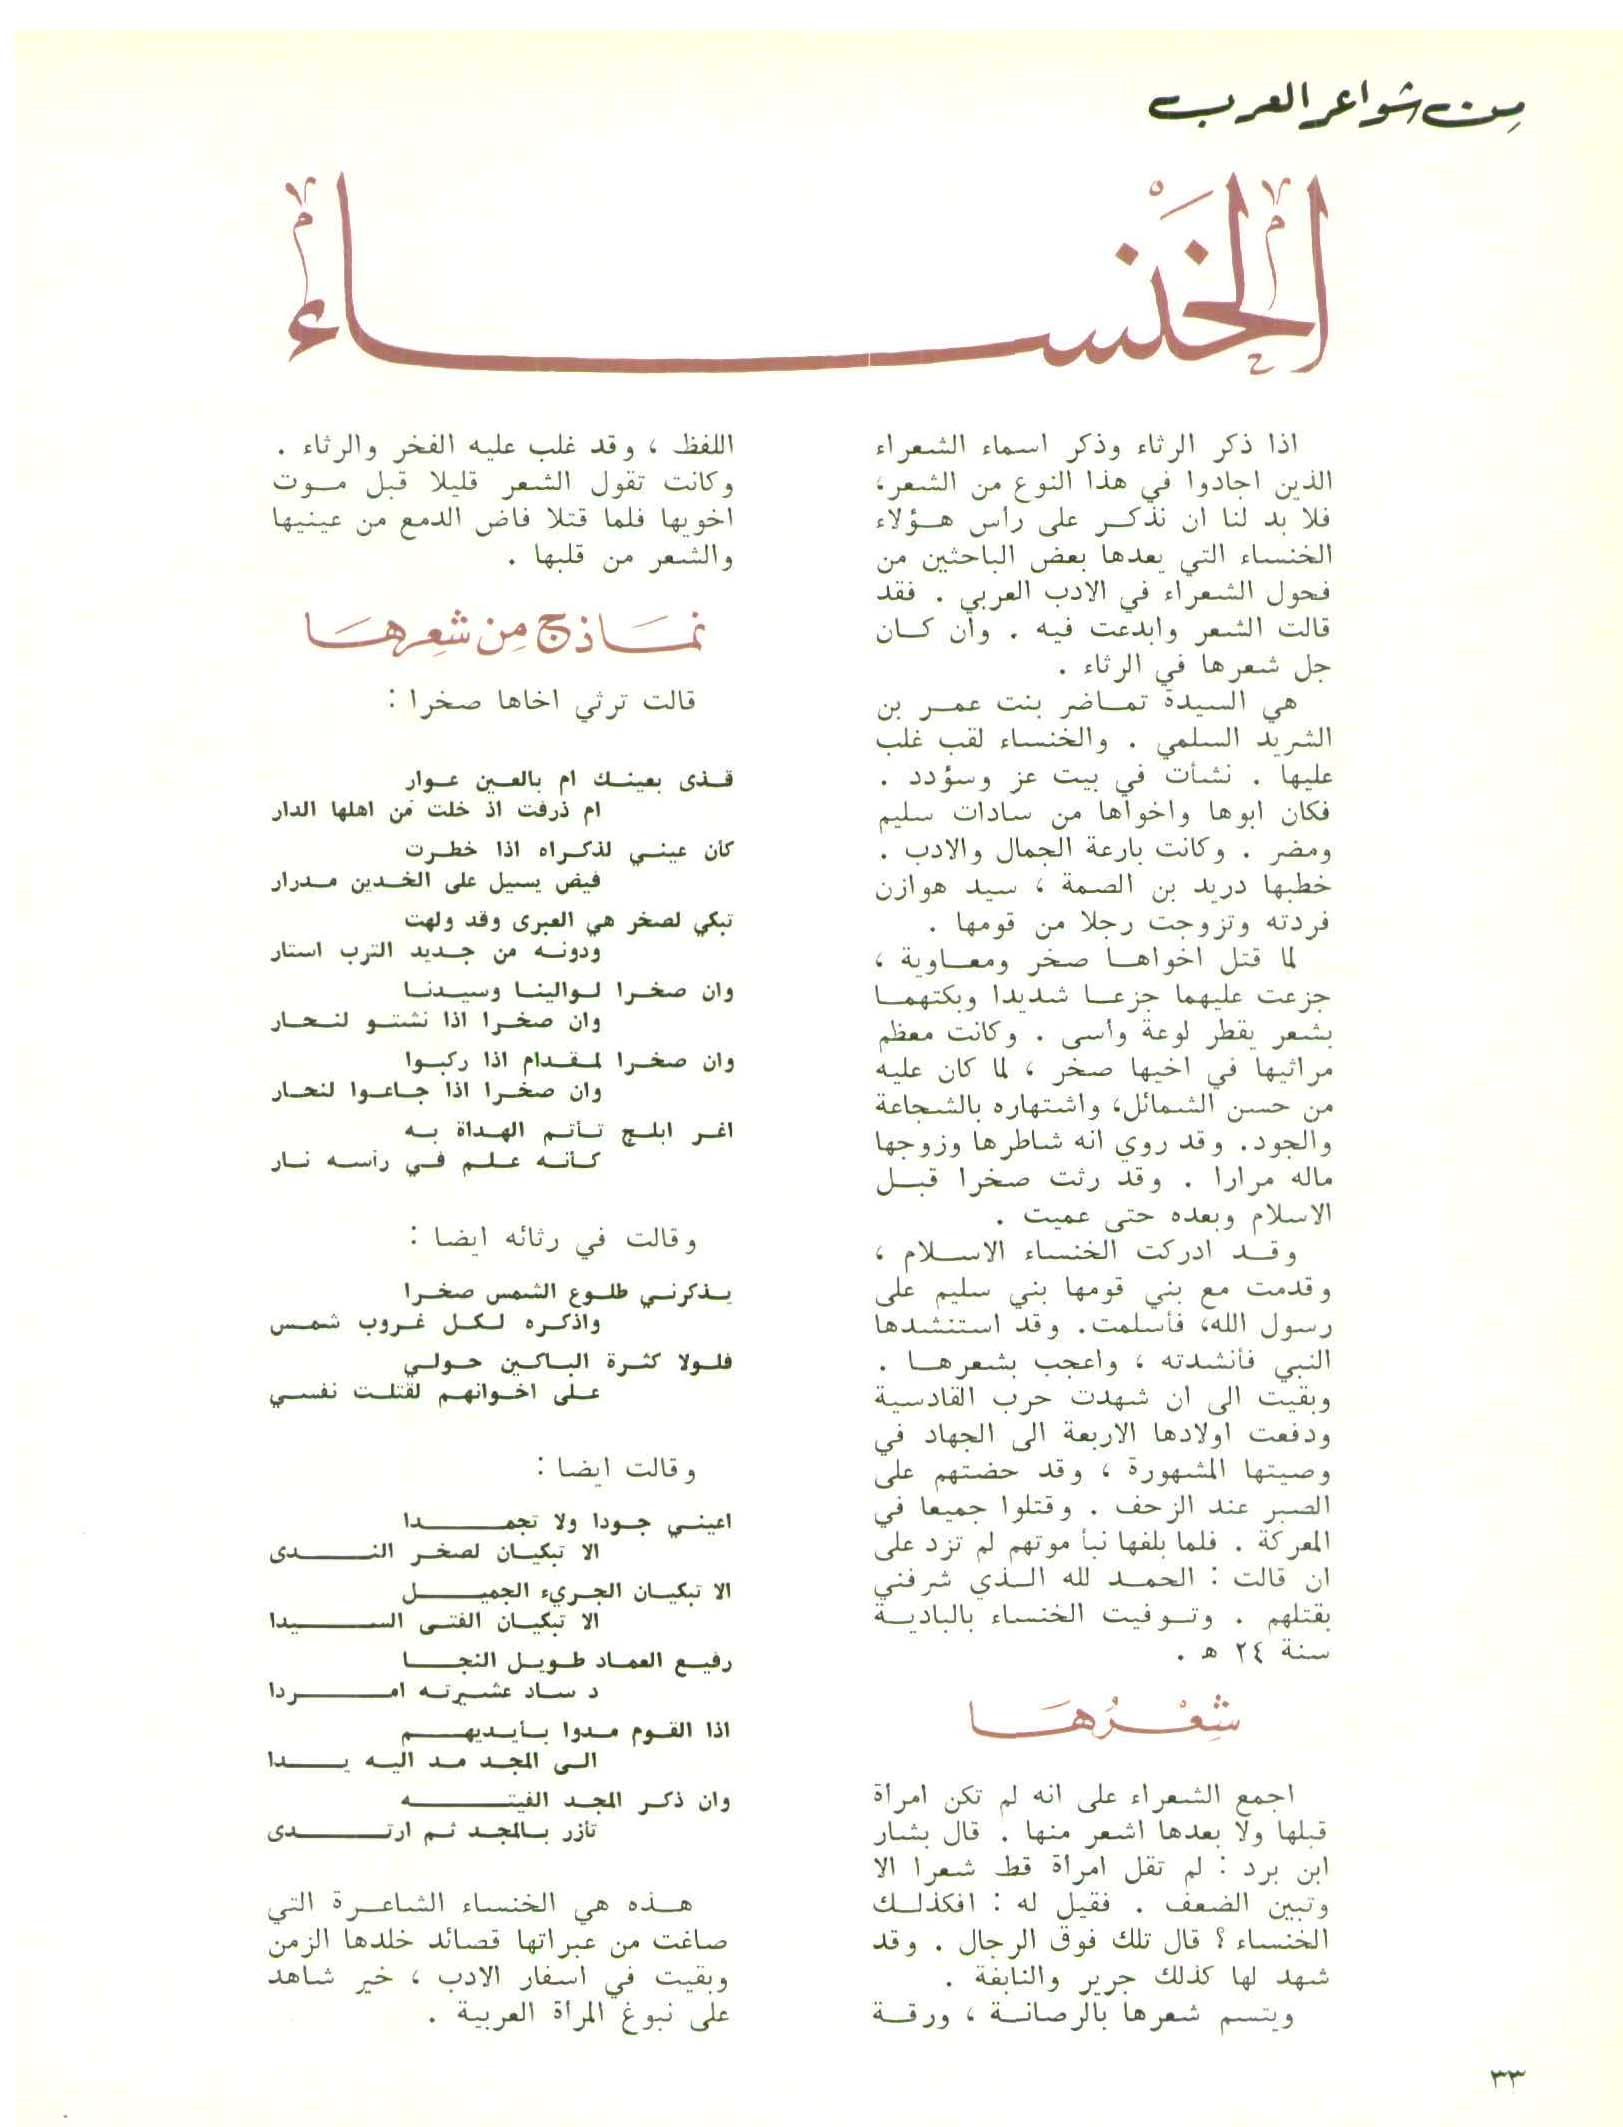 من شواعر العرب
الخنساء
اذا ذكر الرثاء وذكر اسماء الشعراء
الذين اجادوا في هذا النوع من الشعر،
فلا بد لنا ان نذكر على رأس هؤلاء
الخنساء التي يعدها بعض الباحثين من
فحول الشعراء في الادب العربي . فقد
قالت الشعر وابدعت فيه . وان كان
جل شعرها في الرثاء .
هي السيدة تماضر بنت عمر بن
الشريد السلمي . والخنساء لقب غلب
عليها . نشأت في بيت عز وسؤدد .
فكان ابوها واخواها من سادات سليم
ومضر . وكانت بارعة الجمال والادب .
خطبها دريد بن الصمة ، سيد هوازن
فردته وتزوجت رجلا من قومها .
لما قتل اخواها صخر ومعاوية ،
جزعت عليهما جزعا شديدا وبكتهما
بشعر يقطر لوعة وأسى . وكانت معظم
مراثيها في اخيها صخر ، لما كان عليه
من حسن الشمائل، واشتهاره بالشجاعة
والجود. وقد روي انه شاطرها وزوجها
ماله مرارا . وقد رثت صخرا قبل
الاسلام وبعده حتى عميت .
وقد ادركت الخنساء الاسلام ،
وقدمت مع بني قومها بني سليم على
رسول الله، فأسلمت. وقد استنشدها
النبي فأنشدته ، واعجب بشعرها .
وبقيت الى ان شهدت حرب القادسية
ودفعت اولادها الاربعة الى الجهاد في
وصيتها المشهورة ، وقد حضتهم على
الصبر عند الزحف . وقتلوا جميعا في
المعركة . فلما بلغها نبأ موتهم لم تزد على
ان قالت : الحمد لله الذي شرفني
بقتلهم . وتوفيت الخنساء بالبادية
سنة ٢٤ ه .
شعرها
اجمع الشعراء على انه لم تكن امرأة
قبلها ولا بعدها اشعر منها . قال بشار
ابن برد : لم تقل امرأة قط شعرا الا
وتبين الضعف . فقيل له : افكذلك
الخنساء ؟ قال تلك فوق الرجال . وقد
شهد لها كذلك جرير والنابغة .
ويتسم شعرها بالرصانة ، ورقة
اللفظ ، وقد غلب عليه الفخر والرثاء .
وكانت تقول الشعر قليلا قبل موت
اخويها فلما قتلا فاض الدمع من عينيها
والشعر من قلبها .
نماذج من شعرها
قالت ترثي اخاها صخرا :
قذى بعينك ام بالعين عوار
ام ذرفت اذ خلت من اهلها الدار
كأن عيني لذكراه اذا خطرت
فيض يسيل على الخدين مدرار
تبكي لصخر هي العبرى وقد ولهت
ودونه من جديد الترب استار
وان صخرا لوالينا وسيدنا
وان صخرا اذا نشتو لنحار
وان صخرا لمقدام اذا ركبوا
وان صخرا اذا جاعوا لنحار
اغر ابلج تأتم الهداة به
كأنه علم في رأسه نار
وقالت في رثائه ايضا :
يذكرني طلوع الشمس صخرا
واذكره لكل غروب شمس
فلولا كثرة الباكين حولي
على اخوانهم لقتلت نفسي
وقالت ايضا :
اعيني جودا ولا تجمدا
الا تبكيان لصخر الندى
الا تبكيان الجريء الجميل
الا تبكيان الفتى السيدا
رفيع العماد طويل النجا
د ساد عشيرته امردا
اذا القوم مدوا بأيديهم
الى المجد مد اليه يدا
وان ذكر المجد الفيته
تأزر بالمجد ثم ارتدى
هذه هي الخنساء الشاعرة التي
صاغت من عبراتها قصائد خلدها الزمن
وبقيت في اسفار الادب ، خير شاهد
على نبوغ المرأة العربية .
٣٣